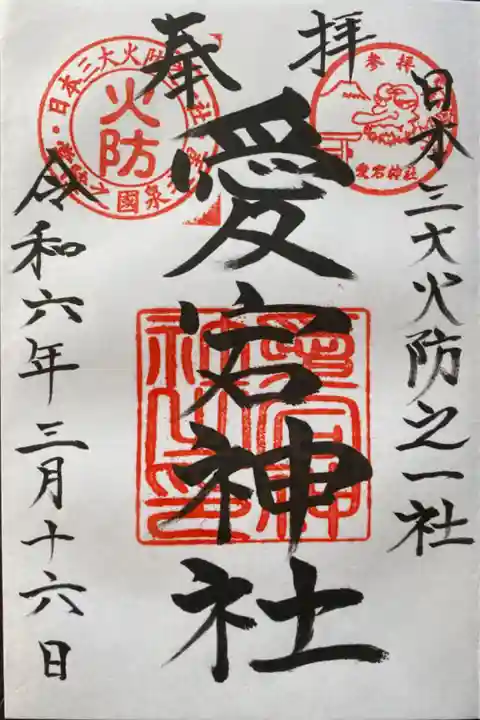 奉拝
日本三大火防之一社
愛宕神社
令和六年三月十六日
火防
日本三大火防
参拝
愛宕神社